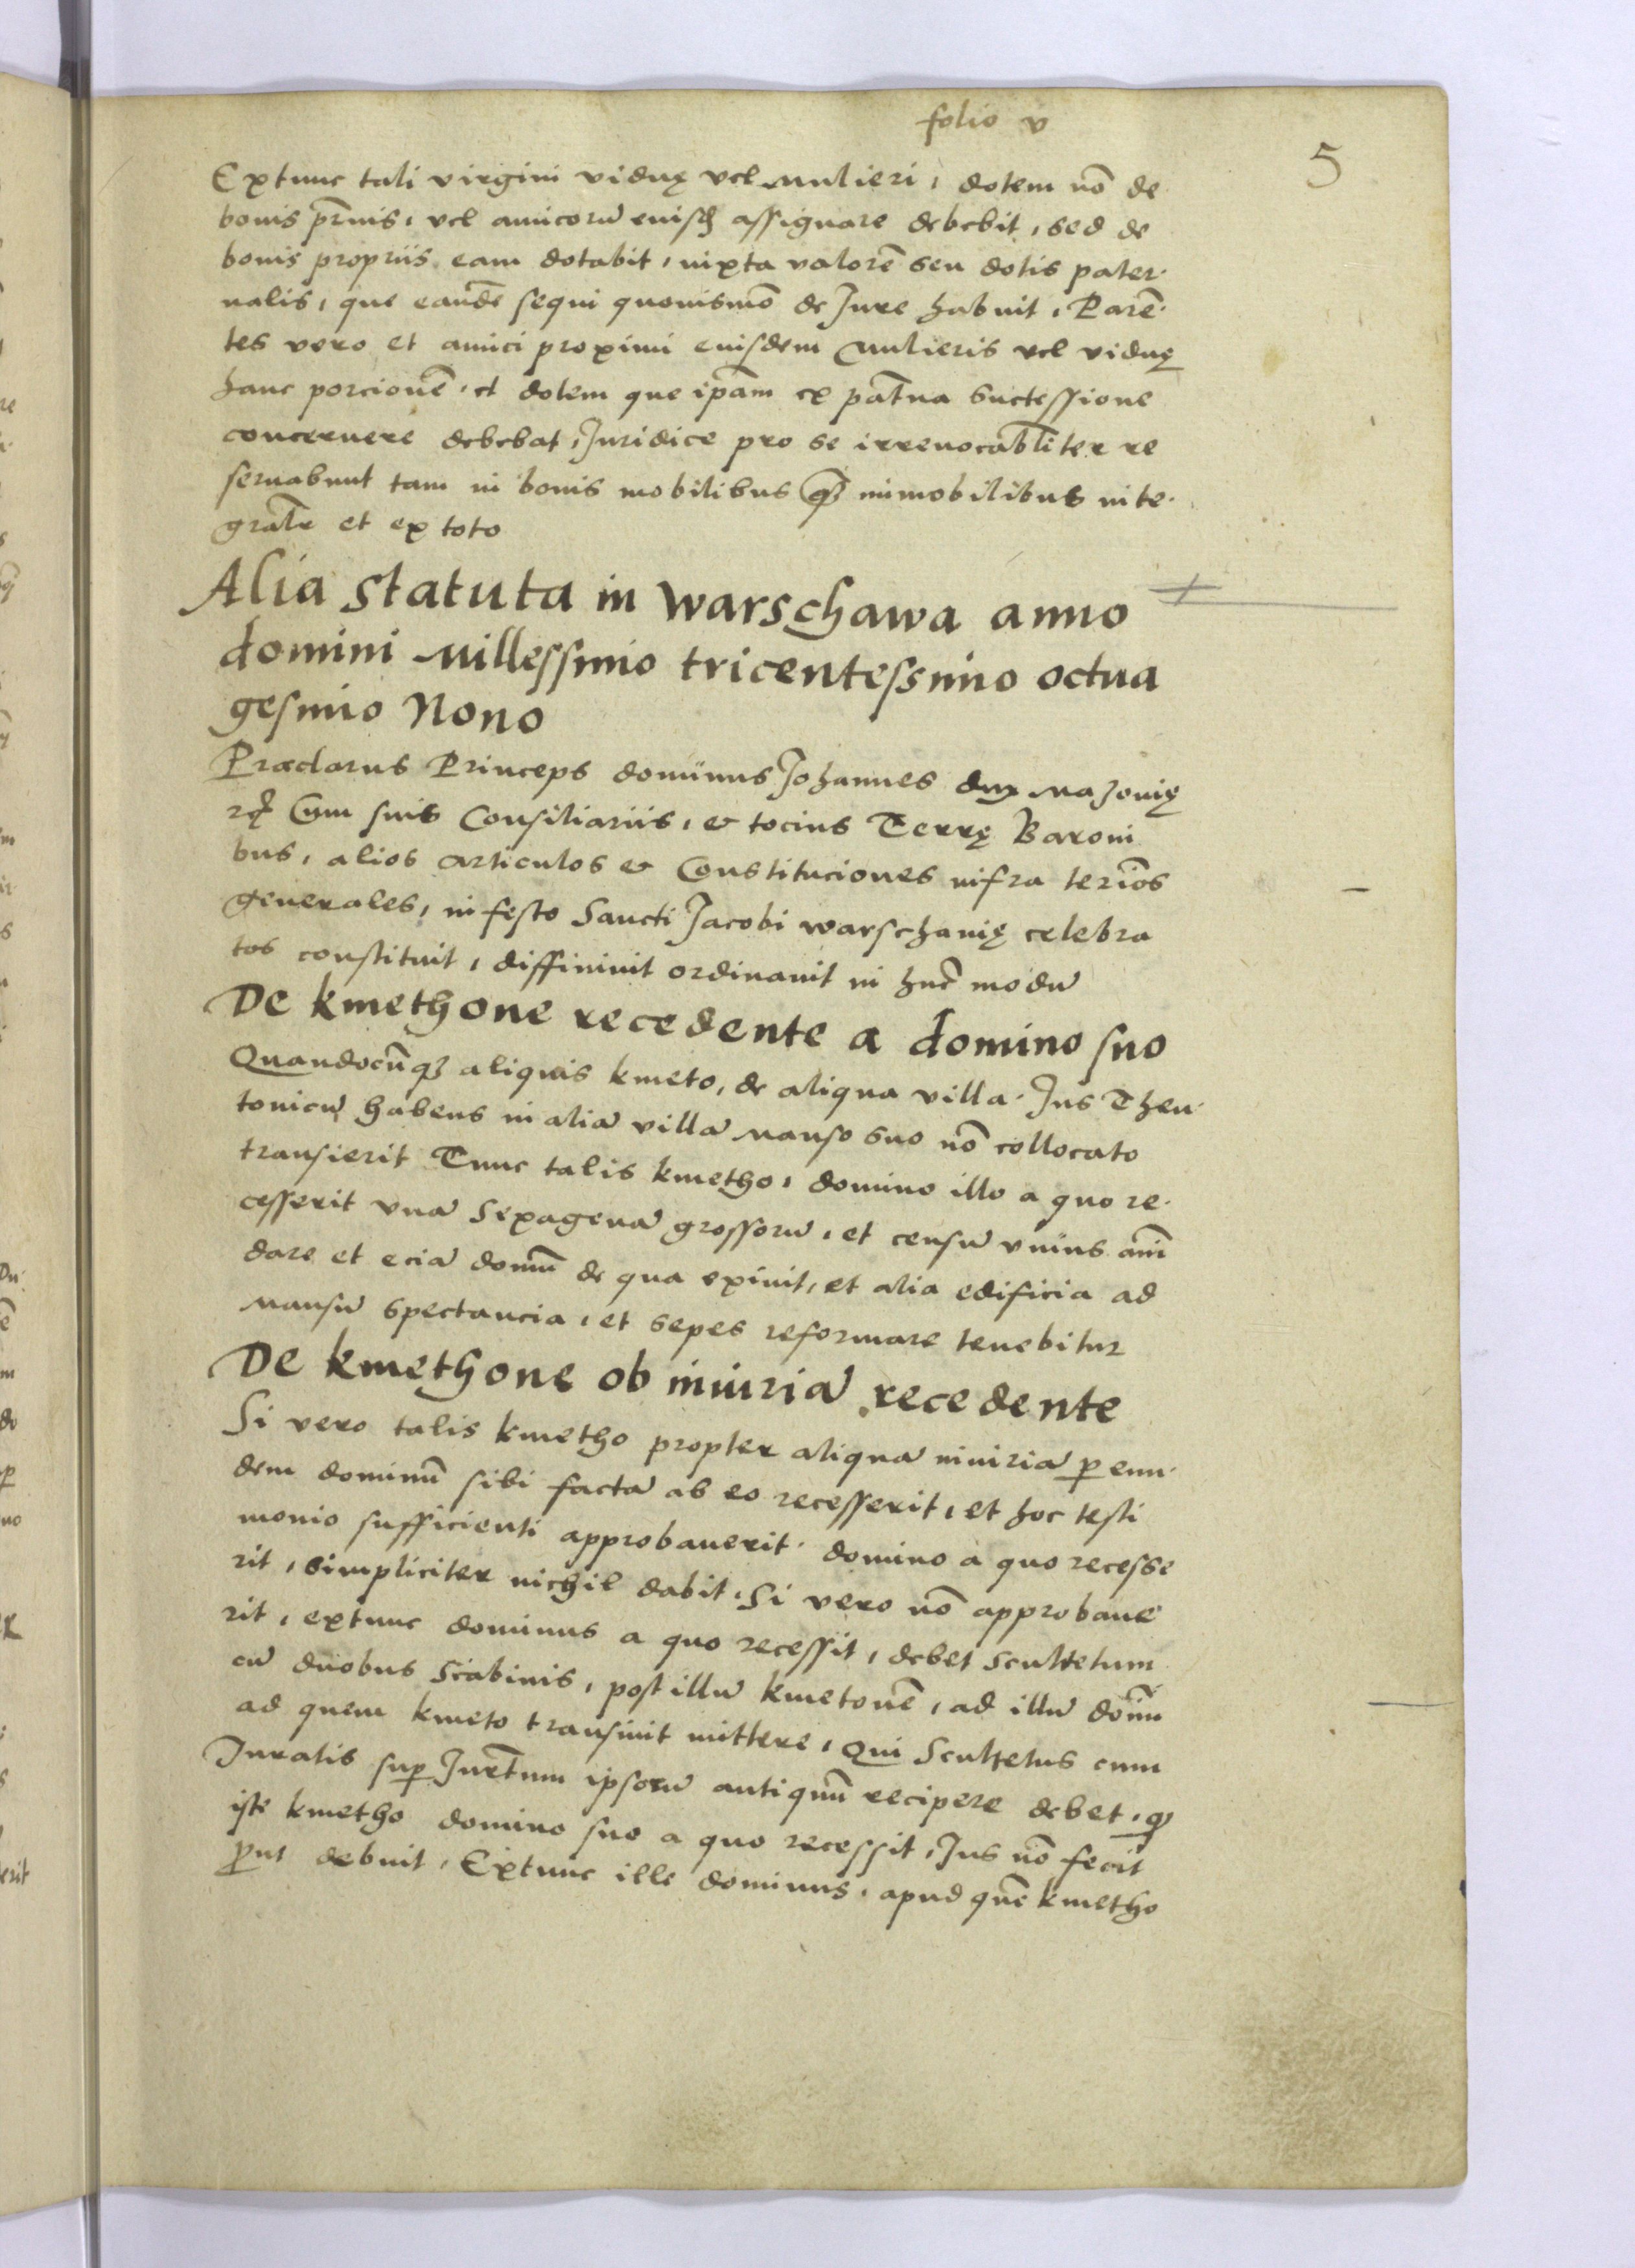 folio v
5
Extunc tali virgini viduę vel Mulieri, dotem nō de
bonis pr̄nis, vel amicorū euisdē assignare debebit, sed de
bonis propriis eam dotabit, iuxta valorē seu dotis pater-
nalis, que eandē sequi quouismō de Jure habuit, Parē-
tes vero et amici proximi euisdem Mulieris vel viduę
hanc porcionē, et dotem que ipām ex pat̄na successione
concernere debebat, Juridice pro se irreuocabl̄iter re
seruabunt tam in bonis mobilibus q̄ȝ immobilibus inte-
gral̄r et ex toto
Alia Statuta in Warschawa anno
domini Millessimo tricentessimo octua
gesimo Nono
Præclarus Princeps dominus Johannes dux Mazouię
rc̄ Cum suis Consiliariis, & tocius Terrę Baroni
bus, alios articulos & Constituciones infra teriōs
generales, in festo Sancti Jacobi warschauię celebra
tos constituit, diffiniuit ordinauit in hūc modū
De kmethone recedente a domino suo
Quandocūqȝ aliquis kmeto, de aliqua villa Jus Theu-
tonicū habens in aliā villā Manso suo nō collocato
transierit Tunc talis kmetho, domino illo a quo re-
cesserit vnā Sexagenā grossorū, et censū vnius anī
dare et eciā domū de qua exiuit, et alia edificia ad
Mansū spectancia, et sepes reformare tenebitur
De kmethone ob iniuriā recedente
Si vero talis kmetho propter aliquā iniuriā ꝑ eun-
dem dominū sibi factā ab eo recesserit, et hoc testi
monio sufficienti approbauerit, domino a quo recesse
rit, simpliciter nichil dabit, Si vero nō approbaue
rit, extunc dominus a quo recessit, debet Scultetum
cū duobus Scabinis, post illū kmetonē, ad illū domī
ad quem kmeto transiuit mittere, Qui Scultetus cum
Juratis suꝑ Jurēt̄um ipsorū antiquū recipere debet, qȝ
iste kmetho domino suo a quo recessit, Jus nō fecit
ꝓut debuit, Extunc ille dominus, apud quē kmetho